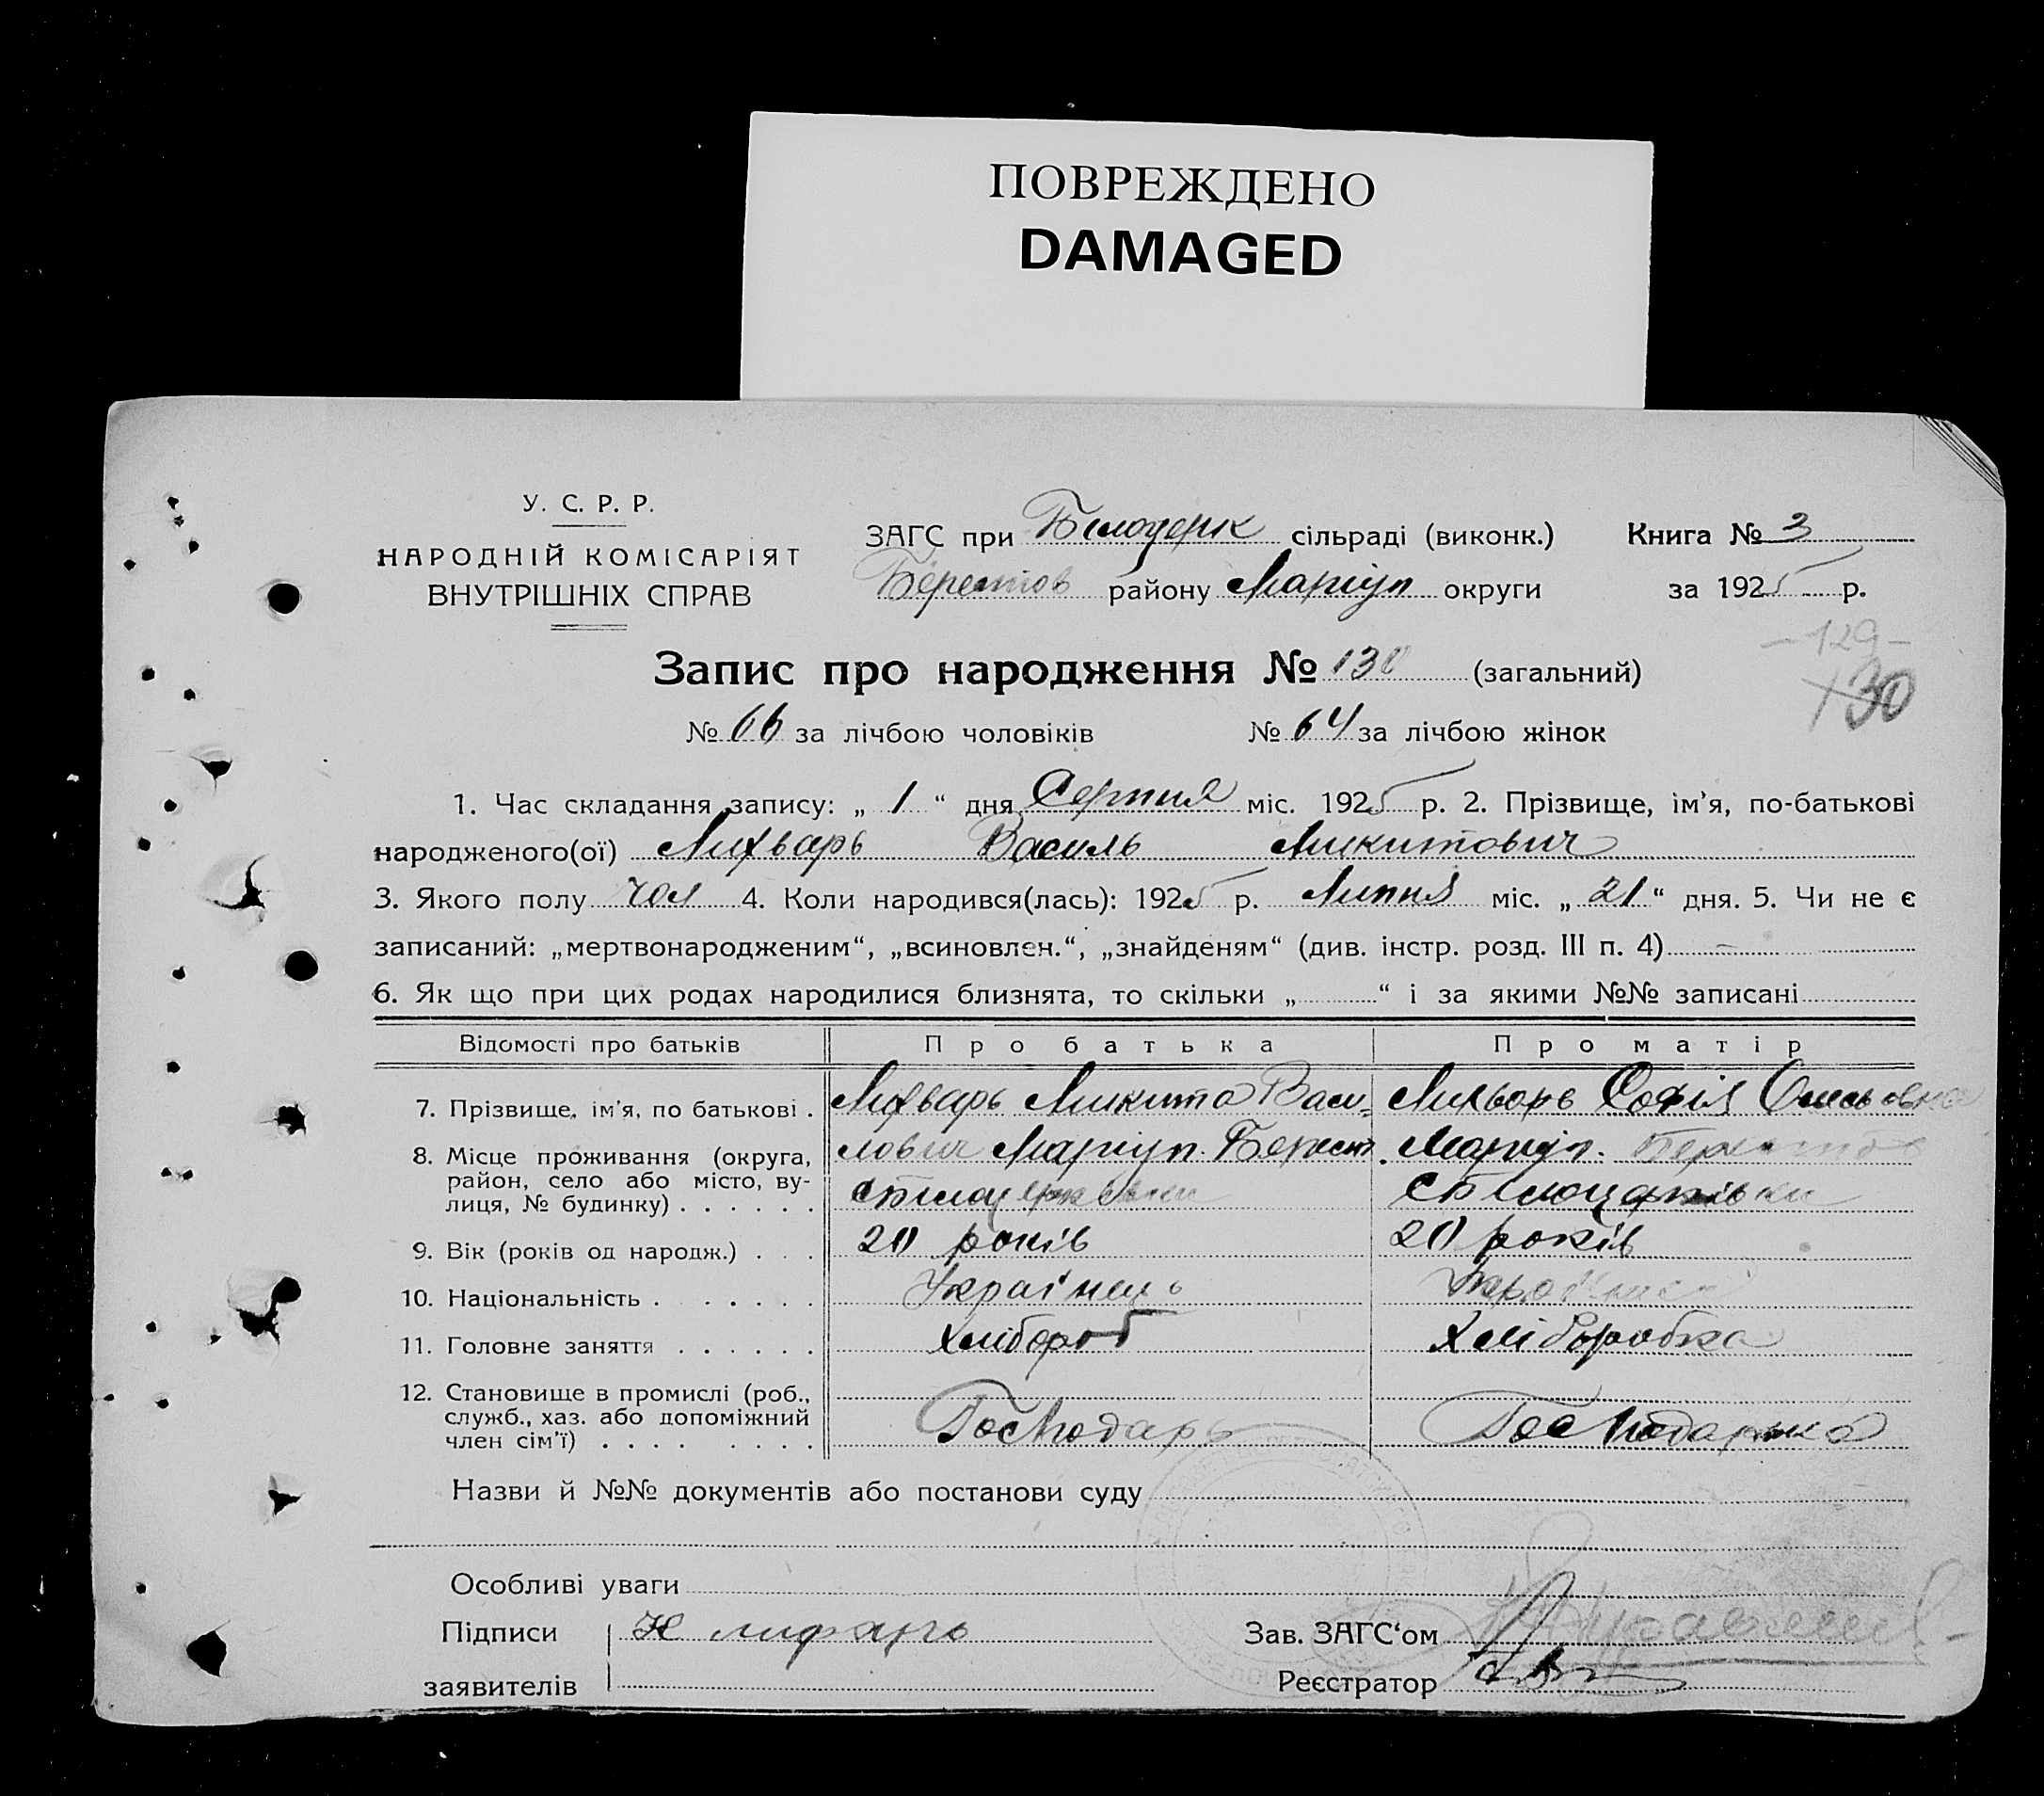 ПОВРЕЖДЕНО
DAMAGED
У. С. Р. Р.
НАРОДНІЙ КОМІСАРІЯТ
ВНУТРІШНІХ СПРАВ
ЗАГС при Білоцерк сільраді (виконк.) Книга № 3
Берестов району Маріуп округи за 1925 р.
-129-
130
Запис про народження № 130 (загальний)
№ 66 за лічбою чоловіків № 64 за лічбою жінок
1. Час складання запису: „ 1 “ дня Серпня міс. 1925 р. 2. Прізвище, ім’я, по-батькові
народженого(ої) Лихварь Василь Микитович
3. Якого полу чол 4. Коли народився(лась): 1925 р. Липня міс. „ 21 “ дня. 5. Чи не є
записаний: „мертвонародженим“, „всиновлен.“, „знайденям“ (див. інстр. розд. III п. 4)
6. Як що при цих родах народилися близнята, то скільки „ “ і за якими №№ записані
Відомості про батьків Про батька Про матір
7. Прізвище, ім’я, по батькові . Лихварь Микита Васи- Лихварь Софія
8. Місце проживання (округа, район, село або місто, вулиця, № будинку) . . . . . . лович Маріуп. Берест. Маріуп. Берестов
с Білоцерківки с Білоцерківки
9. Вік (років од народж.) . . . 20 років 20 років
10. Національність . . . . . . Українець
11. Головне заняття . . . . . . Хлібороб Хліборобка
12. Становище в промислі (роб., служб., хаз. або допоміжний член сім’ї) . . . . . . . . Господарь Господарька
Назви й №№ документів або постанови суду
Особливі уваги
Підписи Н лифарь Зав. ЗАГС‘ом
заявителів Реєстратор